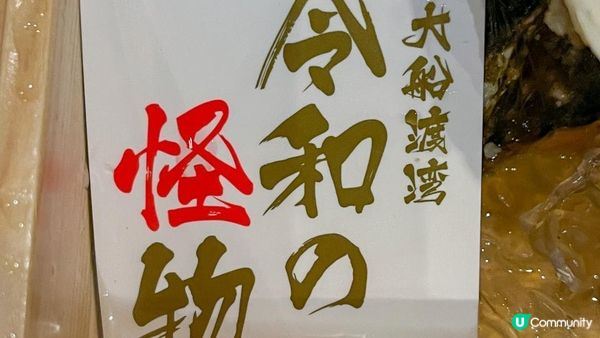 大船渡湾
令和の
怪物
U Community